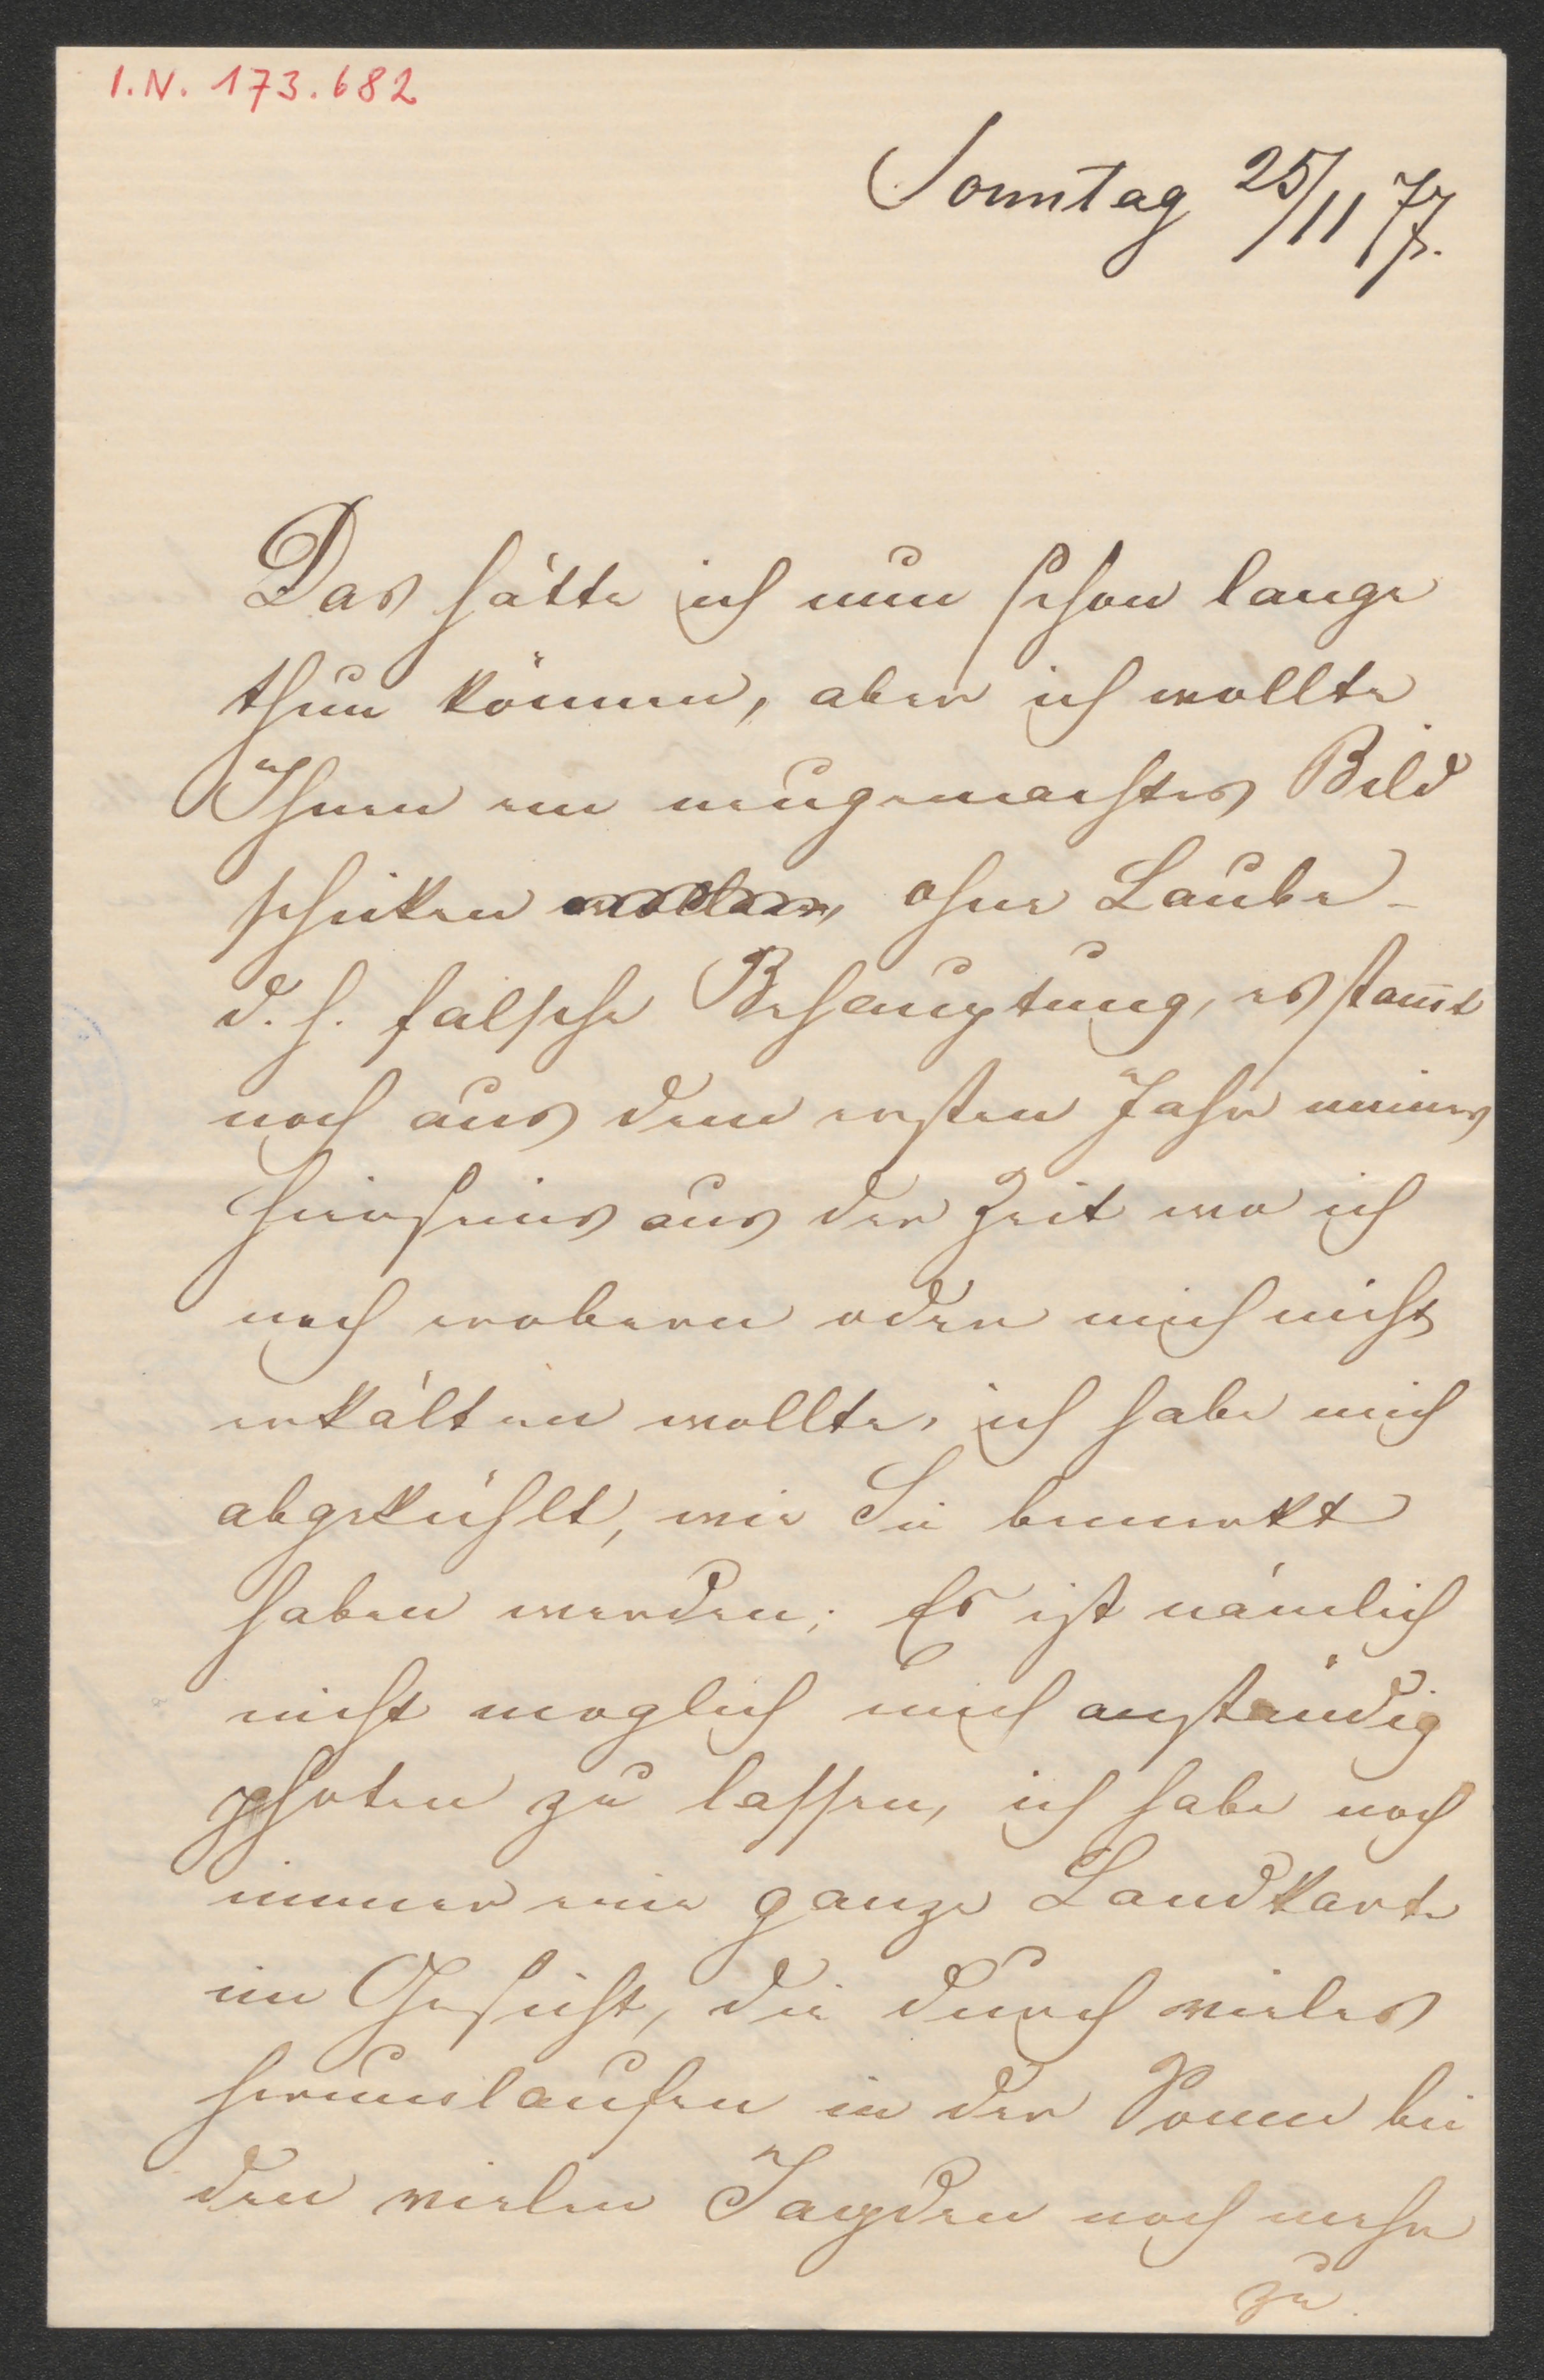 I.N. 173.682
Sonntag 25/11 77.
Das hätte ich nun schon lange
thun können, aber ich wollte
Ihnen ein neugemachtes Bild
schicken wollen, ohne Laube-
d. h. falsche Behauptung, es stam̅t
noch aus dem ersten Jahr meines
Hierseins aus der Zeit wo ich
noch erobern oder mich nicht
erkälten wollte, ich habe mich
abgekühlt, wie Sie bemerkt
haben werden; Es ist nämlich
nicht moglich mich anständig
photen zu lassen, ich habe noch
immer eine ganze Landkarte
im Gesicht, die durch vieles
herumlaufen in der Sonne bei
den vielen Jagden noch mehr
zu